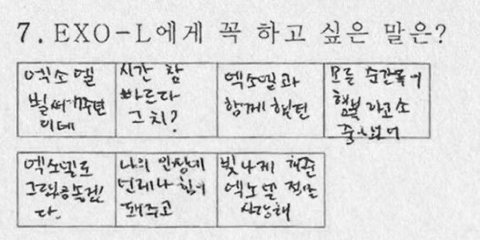 7. EXO-L에게 꼭 하고 싶은 말은?
엑소엘
벌써 7주년
이데
시간 참
빠르다
그치?
엑소엘과
함께 했던
모든 순간들이
행복 하고 소
중했어
엑소엘로
다.
나의 인생에
언제나 힘이
돼주고
빛나게 해준
엑소엘 정말
사랑해